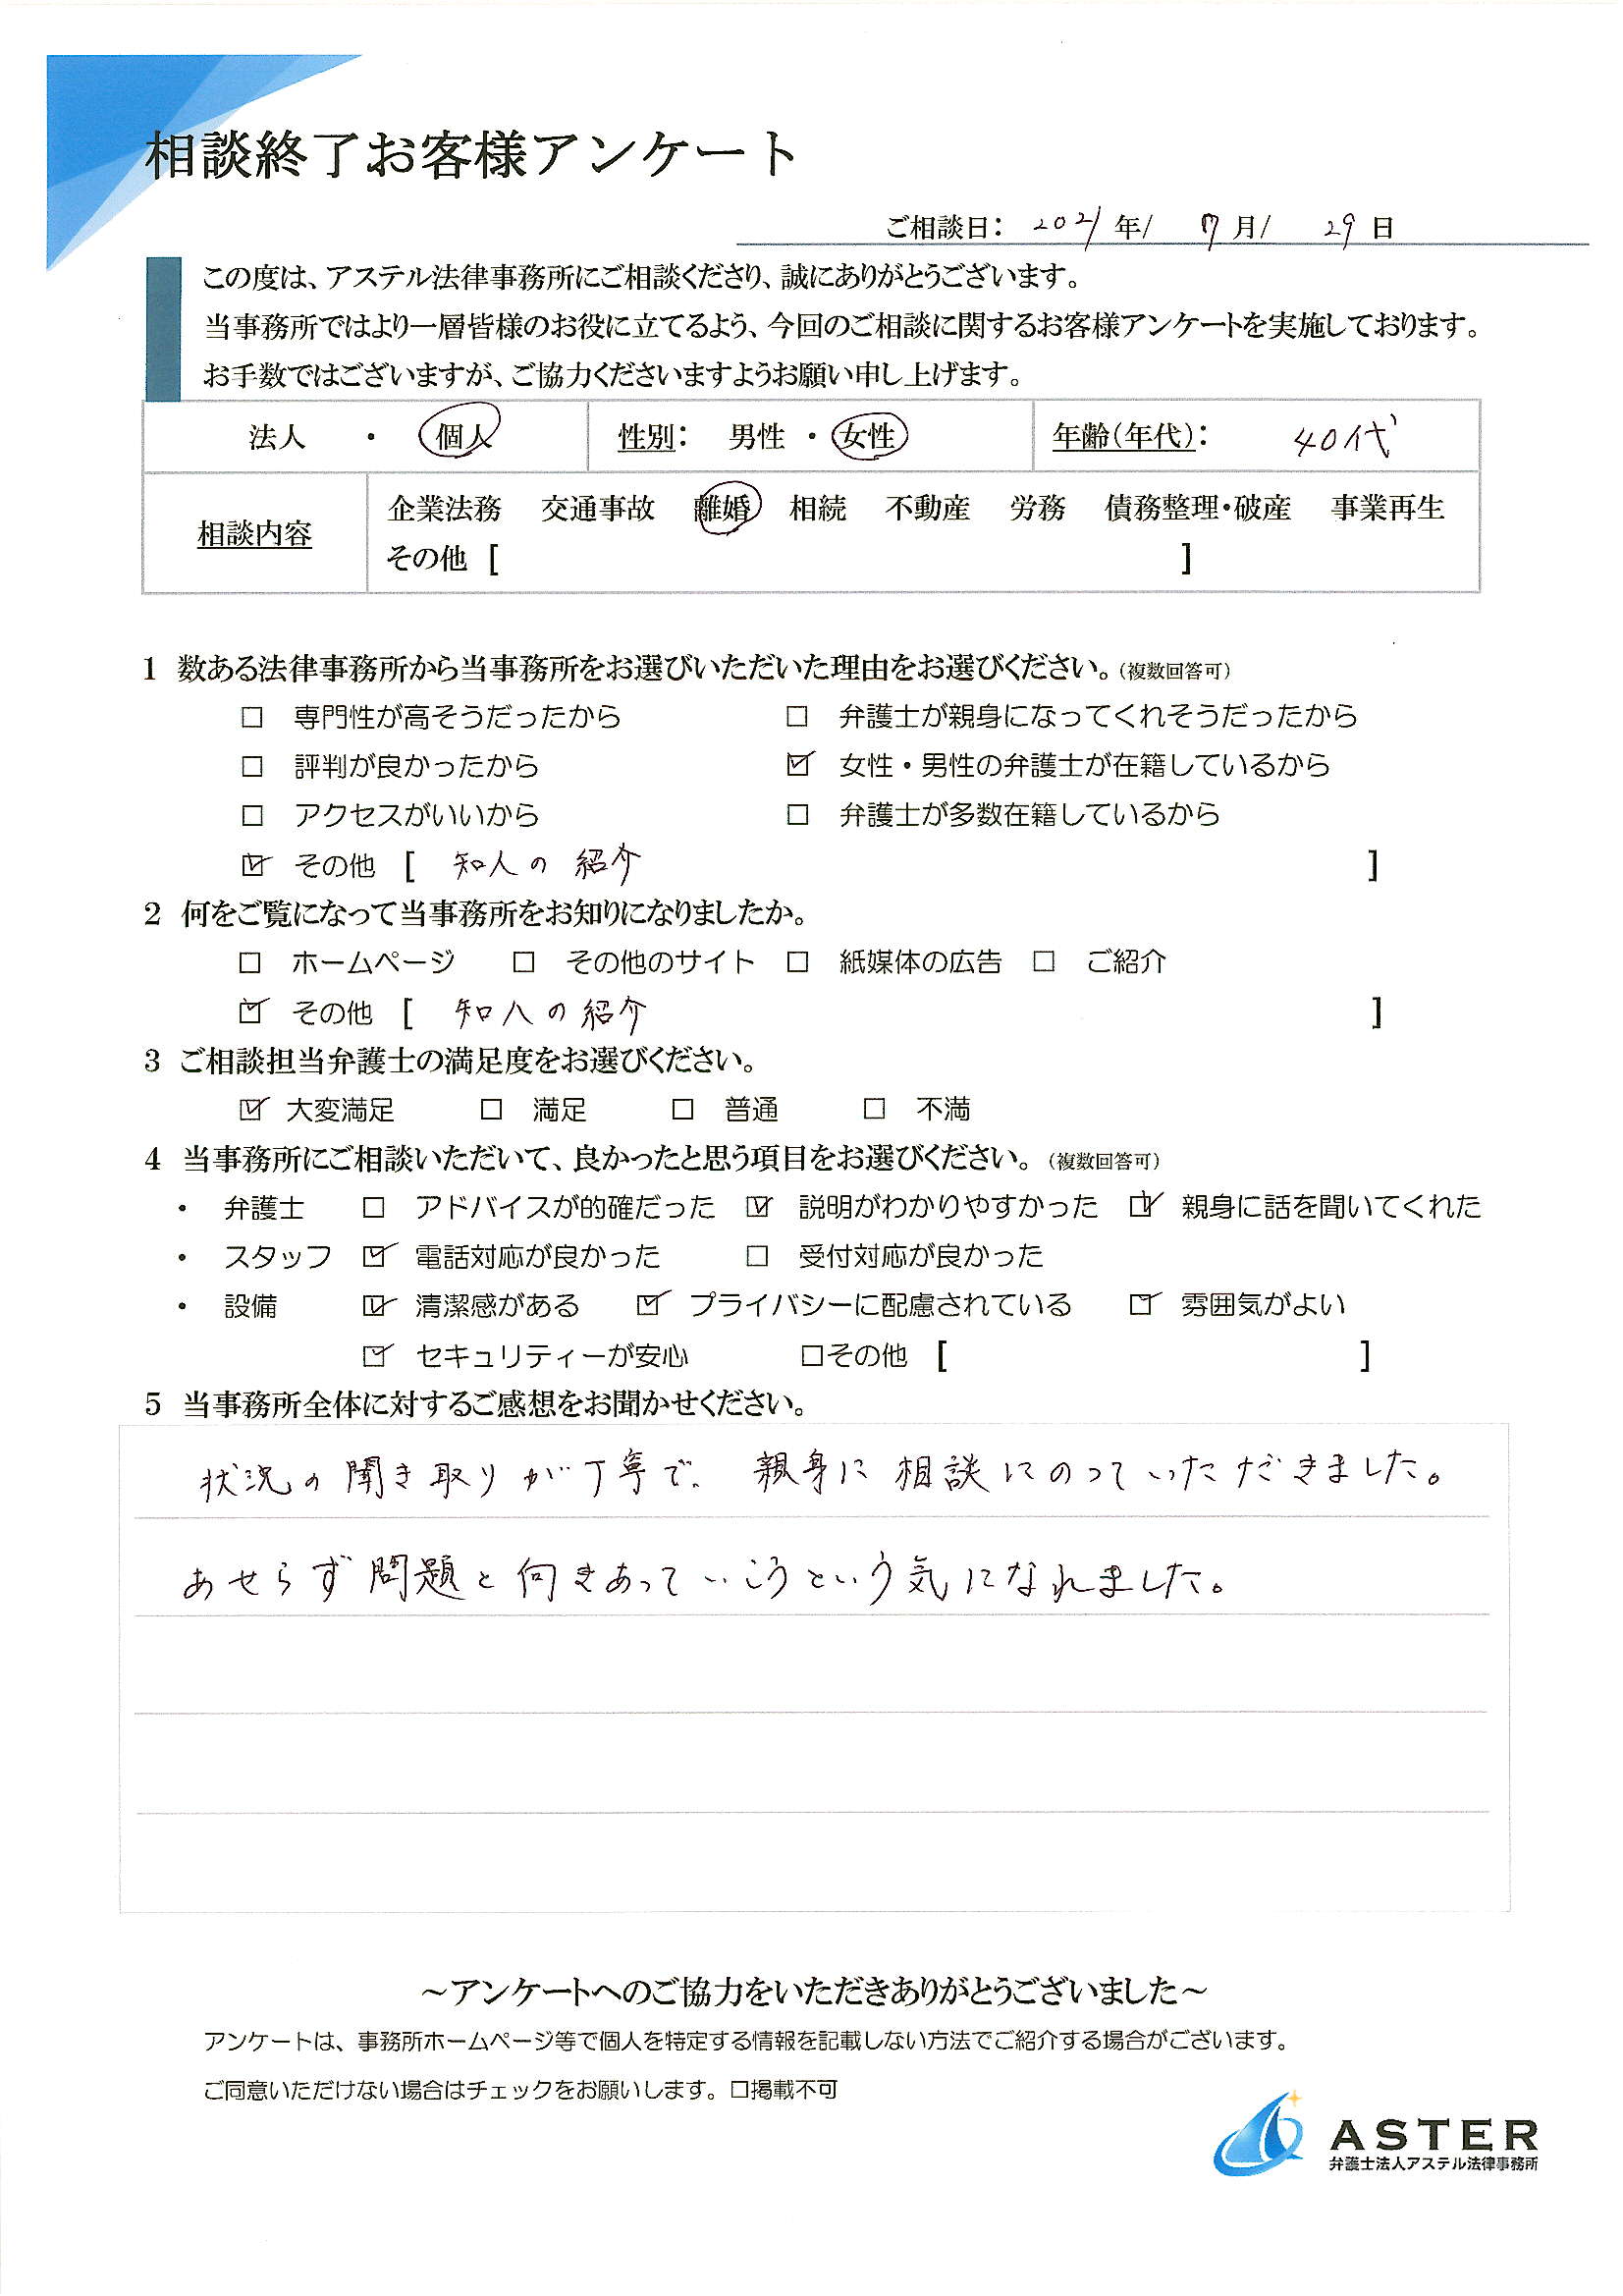 相談終了お客様アンケート
ご相談日： 2021年/ 7月/ 29日
この度は、アステル法律事務所にご相談くださり、誠にありがとうございます。
当事務所ではより一層皆様のお役に立てるよう、今回のご相談に関するお客様アンケートを実施しております。
お手数ではございますが、ご協力くださいますようお願い申し上げます。
法人 ・ 個人 性別： 男性 ・ 女性 年齢（年代）： 40代
相談内容 企業法務 交通事故 離婚 相続 不動産 労務 債務整理・破産 事業再生
その他 [ ]
1 数ある法律事務所から当事務所をお選びいただいた理由をお選びください。（複数回答可）
□ 専門性が高そうだったから □ 弁護士が親身になってくれそうだったから
□ 評判が良かったから ☑ 女性・男性の弁護士が在籍しているから
□ アクセスがいいから □ 弁護士が多数在籍しているから
☑ その他 [ 知人の紹介 ]
2 何をご覧になって当事務所をお知りになりましたか。
□ ホームページ □ その他のサイト □ 紙媒体の広告 □ ご紹介
☑ その他 [ 知人の紹介 ]
3 ご相談担当弁護士の満足度をお選びください。
☑ 大変満足 □ 満足 □ 普通 □ 不満
4 当事務所にご相談いただいて、良かったと思う項目をお選びください。（複数回答可）
・ 弁護士 □ アドバイスが的確だった ☑ 説明がわかりやすかった ☑ 親身に話を聞いてくれた
・ スタッフ ☑ 電話対応が良かった □ 受付対応が良かった
・ 設備 ☑ 清潔感がある ☑ プライバシーに配慮されている ☑ 雰囲気がよい
☑ セキュリティーが安心 □その他 [ ]
5 当事務所全体に対するご感想をお聞かせください。
状況の聞き取りが丁寧で、親身に相談にのっていただきました。
あせらず問題と向きあっていこうという気になれました。
～アンケートへのご協力をいただきありがとうございました～
アンケートは、事務所ホームページ等で個人を特定する情報を記載しない方法でご紹介する場合がございます。
ご同意いただけない場合はチェックをお願いします。□掲載不可
ASTER
弁護士法人アステル法律事務所